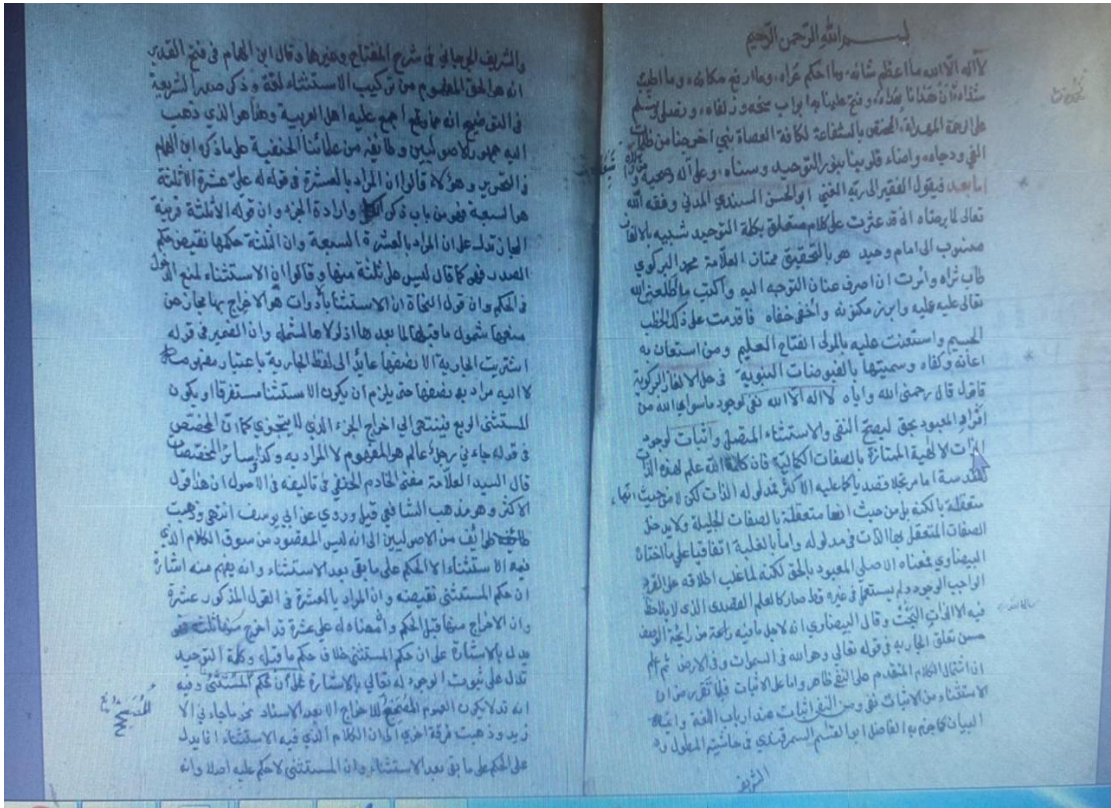 بسم الله الرحمن الرحيم
لا اله الا الله ما اعظم شانه وما احكم عراه وما ارفع مكانه وما اطيب
شذاه ان هدانا بهداه وفتح علينا بها ابواب منحه وزلفاه ونصلي ونسلم
على الرحمة المهداة المختص بالشفاعة لكافة العصاة نبي اخرجنا من ظلمات
الغي ودجاه واضاء قلوبنا بنور التوحيد وسناه وعلى آله وصحبه و
اما بعد فيقول الفقير الى ربه الغني ابو الحسن السندي المدني وفقه الله
تعالى لما يرضاه اني قد عثرت على كلام متعلق بكلمة التوحيد شبيه بالالغاز
منسوب الى امام وحيد هو بالتحقيق ممتاز العلامة محمد البركوي
طاب ثراه واثرت ان اصرف عنان التوجه اليه واكتب ما اطلعني الله
تعالى عليه وابرز مكنونه واخفى خفاه فاقدمت على ذلك الخطب
الجسيم واستعنت عليه بالمولى الفتاح العليم ومن استعان به
اعانه وكفاه وسميتها بالفيوضات النبوية في حل الالغاز البركوية
فاقول قال رحمني الله واياه لا اله الا الله نفى لوجود ما سوى الله من
افراد المعبود بحق ليصح النفي والاستثناء المتصل واثبات لوجود
الذات الالهية الممتازة بالصفات الكمالية فان كلمة الله علم لهذه الذات
المقدسة اما مرتجلا قصديا كما عليه الاكثر فمدلوله الذات لكن لا من حيث انها
متعقلة بالكنه بل من حيث انها متعقلة بالصفات الجليلة ولا يدخل
الصفات المتعقل بها الذات في مدلوله واما بالغلبة اتفاقيا على ما اختاره
البيضاوي فمعناه الاصلي المعبود بالحق لكنه لما غلب اطلاقه على الفرد
الواجب الوجود ولم يستعمل في غيره قط صار كالعلم القصدي الذي لا يلاحظ
فيه الا الذات البحت وقال البيضاوي انه لاجل ما فيه رائحة من رايحة الوصف
حسن تعلق الجار به في قوله تعالى وهو الله في السموات وفي الارض ثم
ان اشتمال الكلام المتقدم على النفي ظاهر واما على الاثبات فلما تقرر من ان
الاستثناء من الاثبات نفي ومن النفي اثبات عند ارباب اللغة
البيان كما جزم به الفاضل ابو القاسم السمرقندي في حاشيته المطول
الشريف
والشريف الجرجاني في شرح المفتاح وغيرها وقال ابن الهمام في فتح القدير
انه هو الحق المفهوم من تركيب الاستثناء لغة وذكر صدر الشريعة
في التوضيح انه مما وقع اجمع عليه اهل العربية وهذا هو الذي ذهب
اليه جمهور الاصوليين وطايفة من علمائنا الحنفية على ما ذكره ابن الهمام
في التحرير وهؤلاء قالوا ان المراد بالعشرة في قوله له علي عشرة الا ثلثة
هو السبعة فهو من باب ذكر الكل وارادة الجزء وان قوله الا ثلثة قرينة
تدل على ان المراد بالعشرة السبعة وان الثلثة حكمها نقيض حكم
الصدر فهو كما قال ليس علي ثلثة منها وقالوا ان الاستثناء لمنع الدخول
في الحكم وان قول النحاة ان الاستثناء بأدوات هو الاخراج بها مجاز عن
منعها شمول ما قبلها لما بعدها اذ لولاها لشمله وان الضمير في قوله
اشتريت الجارية الا نصفها عايد الى لفظ الجارية باعتبار مفهومها
لا اليه مراد به نصفها حتى يلزم ان يكون الاستثناء مستغرقا او يكون
المستثنى الربع فينتهي الى اخراج الجزء الذي لا يتجزى كما ان المخصص
في قوله جاءني رجل عالم هو المفهوم لا المراد به وكذا سائر المختصات
قال السيد العلامة مفتي الخادم الحنفي في تاليفه في الاصول ان هذا قول
الاكثر وهو مذهب الشافعي قيل وروي عن ابي يوسف انتهى وذهبت
طوائف من الاصوليين الى انه ليس المقصود من سوق الكلام الذي
فيه الاستثناء الا الحكم على ما بقي بعد الاستثناء وانه يفهم منه اشارة
ان حكم المستثنى نقيضه وان المراد بالعشرة في القول المذكور عشرة
وان الاخراج منها قبل الحكم والمعناه له علي عشرة قد اخرج منها ثلث
يدل بالاشارة على ان حكم المستثنى خلاف حكم ما قبله وكلمة التوحيد
تدل على ثبوت الوجود له تعالى بالاشارة
انه قد لا يكون العموم المصحح للاخراج الا بعد الاسناد نحو ما جاءني الا
زيد وذهبت فرقة اخرى الى ان الكلام الذي فيه الاستثناء انما يدل
على الحكم على ما بقي بعد الاستثناء وان المستثنى لا حكم عليه اصلا وانه